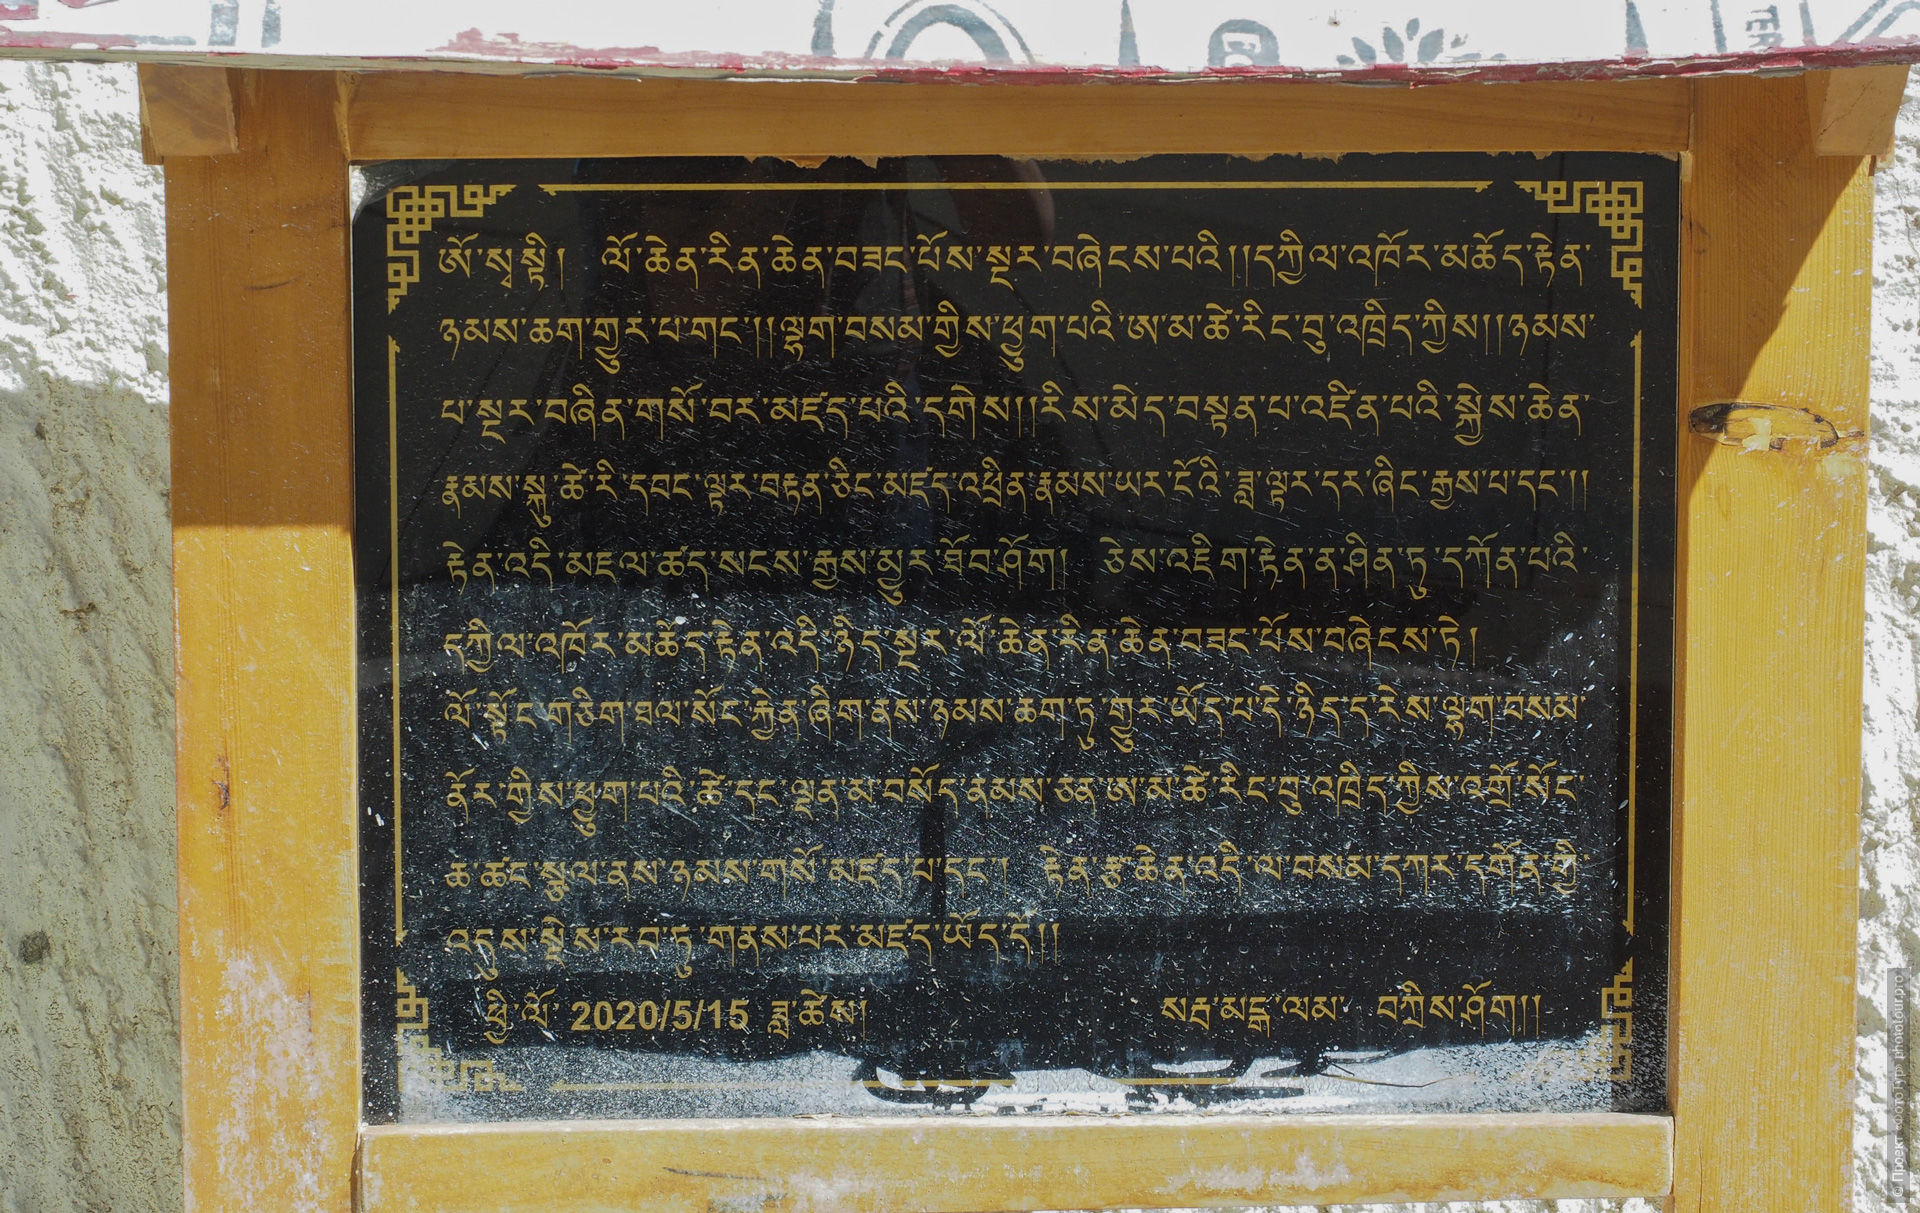 ཨོ་སྭ་སྟི།  ལོ་ཆེན་རིན་ཆེན་བཟང་པོས་སྔར་བཞེངས་པའི།།དཀྱིལ་འཁོར་མཆོད་རྟེན་
ཉམས་ཆག་གྱུར་པ་གང་།།ལྷག་བསམ་གྱིས་ཕྱུག་པའི་ཨ་མ་ཚེ་རིང་བུ་འཁྲིད་ཀྱིས།།ཉམས་
པ་སྔར་བཞིན་གསོ་བར་མཛད་པའི་དགེས།།རིས་མེད་བསྟན་པ་འཛིན་པའི་སྐྱེས་ཆེན་
རྣམས་སྐུ་ཚེ་རི་དབང་ལྟར་བརྟན་ཅིང་མཛད་འཕྲིན་རྣམས་ཡར་ངོའི་ཟླ་ལྟར་དར་ཞིང་རྒྱས་པ་དང་།།
རྟེན་འདི་མཇལ་ཚད་སངས་རྒྱས་མྱུར་ཐོབ་ཤོག།  ཅེས་འཇིག་རྟེན་ན་ཤིན་ཏུ་དཀོན་པའི་
དཀྱིལ་འཁོར་མཆོད་རྟེན་འདི་ཉིད་སྔར་ལོ་ཆེན་རིན་ཆེན་བཟང་པོས་བཞེངས་ཏེ།
ལོ་སྟོང་གཅིག་ཐལ་སོང་རྐྱེན་ཞིག་ནས་ཉམས་ཆག་ཏུ་གྱུར་ཡོད་པ་དེ་ཉིད་ད་རེས་ལྷག་བསམ་
ནོར་གྱིས་ཕྱུག་པའི་ཚེ་དང་ལྡན་མ་བསོད་ནམས་ཅན་ཨ་མ་ཚེ་རིང་བུ་འཁྲིད་ཀྱིས་འགྲོ་སོང་
ཆ་ཚང་སྩལ་ནས་ཉམས་གསོ་མཛད་པ་དང་།  རྟེན་རྩ་ཆེན་འདི་ལ་བསམ་དཀར་དགོན་གྱི་
འདུས་སྡེས་རབ་ཏུ་གནས་པར་མཛད་ཡོད་དོ།།
ཕྱི་ལོ་ 2020/5/15 ཟླ་ཚེས།  སརྦ་མངྒ་ལམ་  བཀྲིས་ཤོག།།
© Проект «ФОТОТУР» phototour.pro